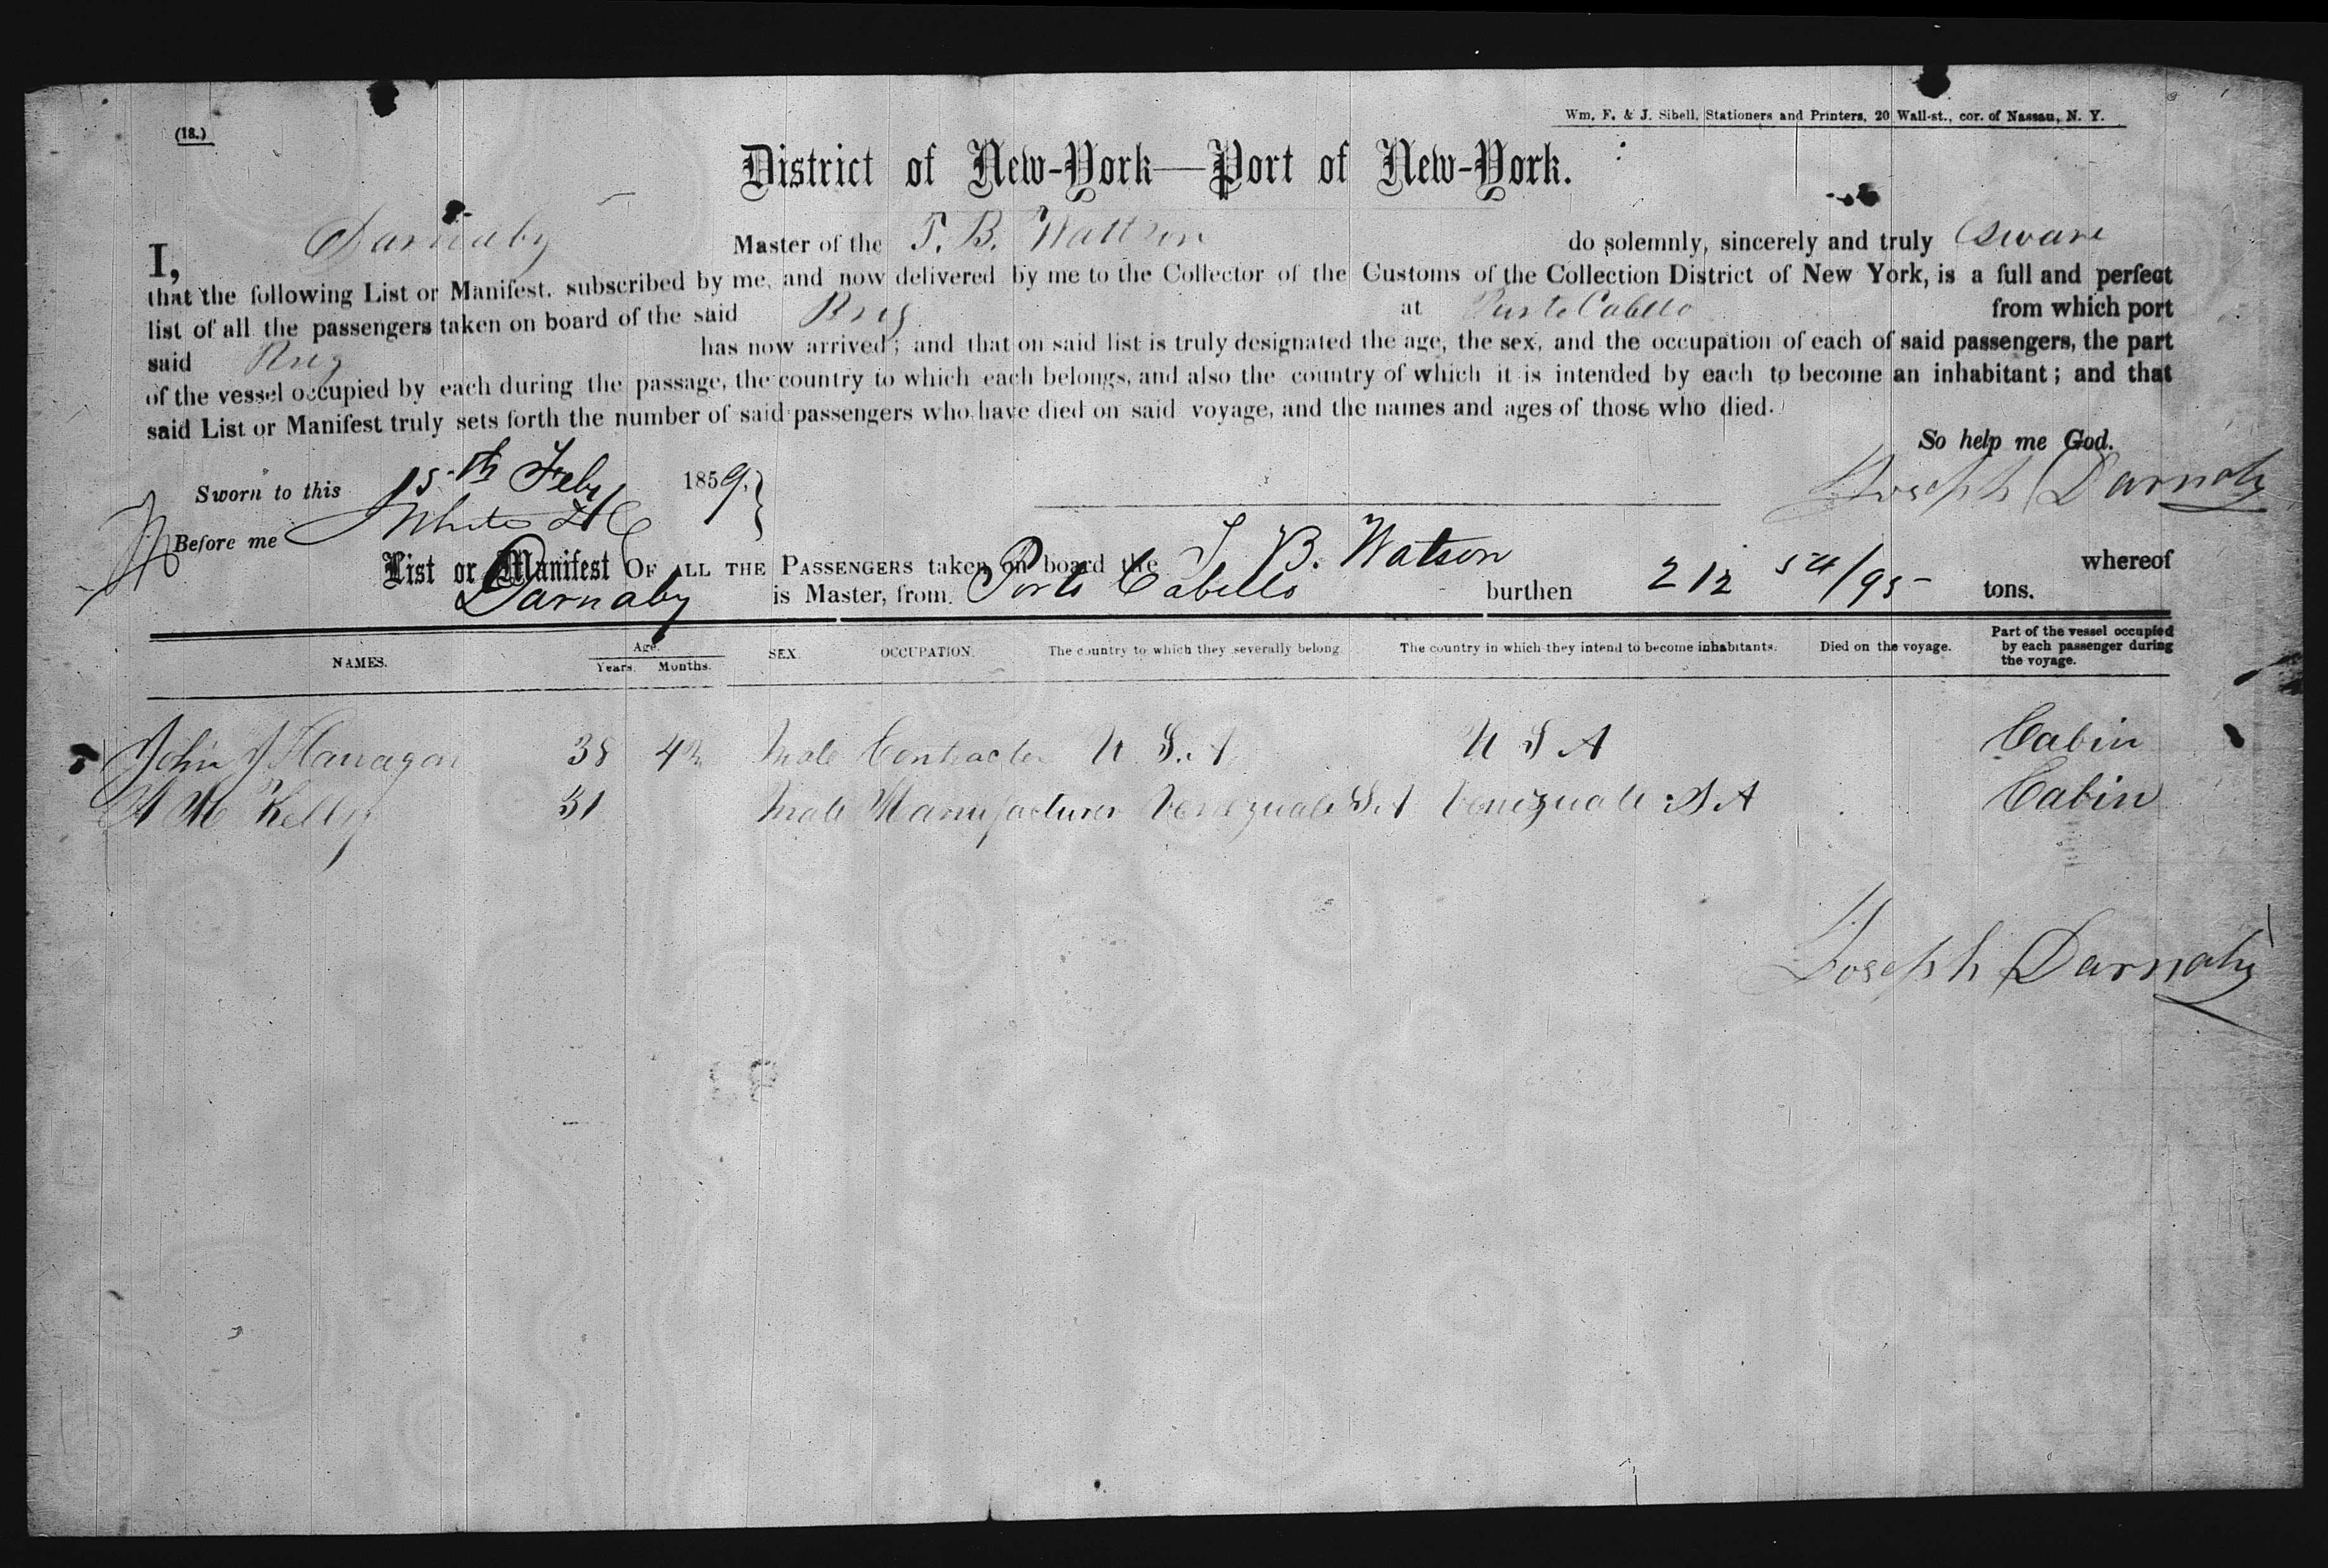 Wm. F. & J. Sibell, Stationers and Printers, 20 Wall-st., cor. of Nassau, N. Y.
(18.)
District of New-York—Port of New-York.
I, Darnaby Master of the T. B. Wattson do solemnly, sincerely and truly Sware
that the following List or Manifest, subscribed by me, and now delivered by me to the Collector of the Customs of the Collection District of New York, is a full and perfect
list of all the passengers taken on board of the said Brig at Porto Cabello from which port
said Brig has now arrived; and that on said list is truly designated the age, the sex, and the occupation of each of said passengers, the part
of the vessel occupied by each during the passage, the country to which each belongs, and also the country of which it is intended by each to become an inhabitant; and that
said List or Manifest truly sets forth the number of said passengers who have died on said voyage, and the names and ages of those who died.
So help me God.
Sworn to this 15th Feby 1859, Joseph Darnaby
Before me White
List or Manifest OF ALL THE PASSENGERS taken on board the T. B. Watson whereof
Darnaby is Master, from Porto Cabello burthen 212 54/95 tons.
NAMES. Age. Years. Months. SEX. OCCUPATION. The country to which they severally belong. The country in which they intend to become inhabitants. Died on the voyage. Part of the vessel occupied by each passenger during the voyage.
John J Flanagan 38 Male Contractor U. S. A U S A Cabin
Kelly 31 Male Manufacturer Venezuale S. A Venezuale S A Cabin
Joseph Darnaby